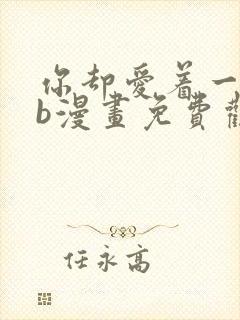 你却愛着一
b漫畫免費
任永高